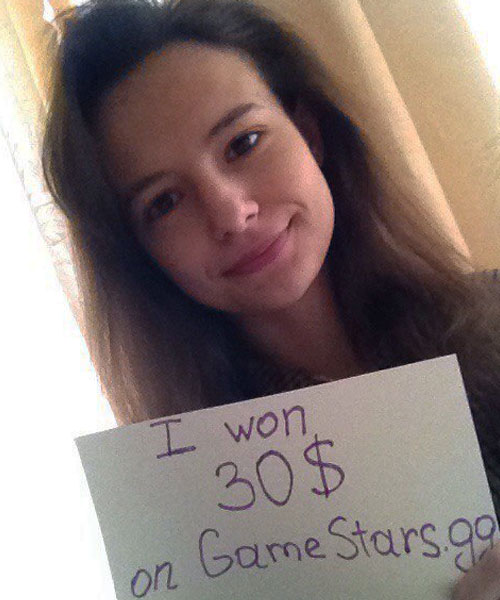 I won
30$
on GameStars.gg